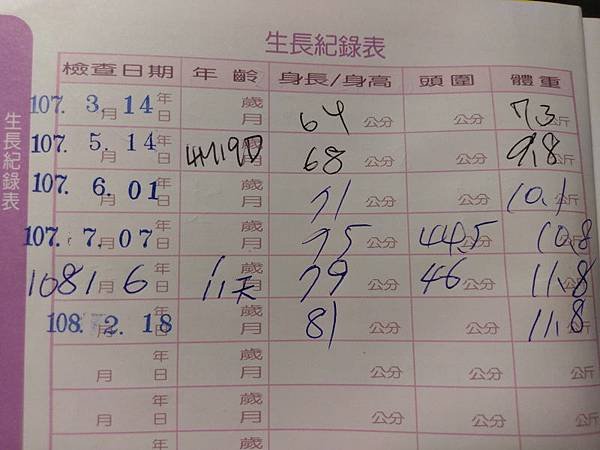 生長紀錄表
生長紀錄表
檢查日期 年齡 身長/身高 頭圍 體重
107. 3月14年日 歲月 64公分 公分 7.3公斤
107. 5.月14年日 4M19D 歲月 68公分 公分 9.8公斤
107. 6.月01年日 歲月 71公分 公分 10.1公斤
107. 7.月07年日 歲月 75公分 44.5公分 10.8公斤
108 1月6年日 歲月 79公分 46公分 11.8公斤
108. 2.月18年日 歲月 81公分 公分 11.8公斤
年月日 歲月 公分 公分 公斤
年月日 歲月 公分 公分 公斤
年 歲